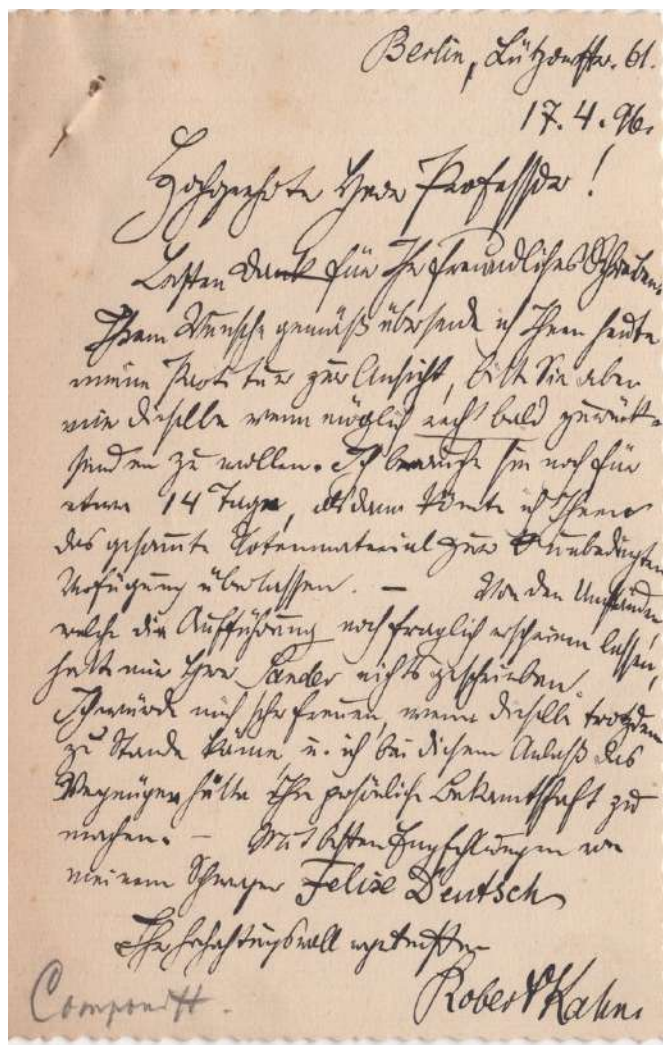 Berlin, Lützowstr. 61.
17.4.96.
Hochgeehrter Herr Professor!
Besten Dank für Ihr freundliches Schreiben.
Ihrem Wunsche gemäß übersende ich Ihnen heute
meine Partitur zur Ansicht, bitte Sie aber
mir dieselbe wenn möglich recht bald zurück-
senden zu wollen. Ich brauche sie noch für
etwa 14 Tage, alsdann könnte ich Ihnen
das gesammte Notenmaterial zur unbedingten
Verfügung überlassen. — Von den Umständen,
welche die Aufführung noch fraglich erscheinen lassen,
hatte mir Herr Sander nichts geschrieben.
Ich würde mich sehr freuen, wenn dieselbe trotzdem
zu Stande käme u. ich bei diesem Anlaß das
Vergnügen hätte Ihre persönliche Bekanntschaft zu
machen. — Mit besten Empfehlungen von
meinem Schwager Felix Deutsch
Ihr hochachtungsvoll ergebenster
Robert Kahn.
Componist.